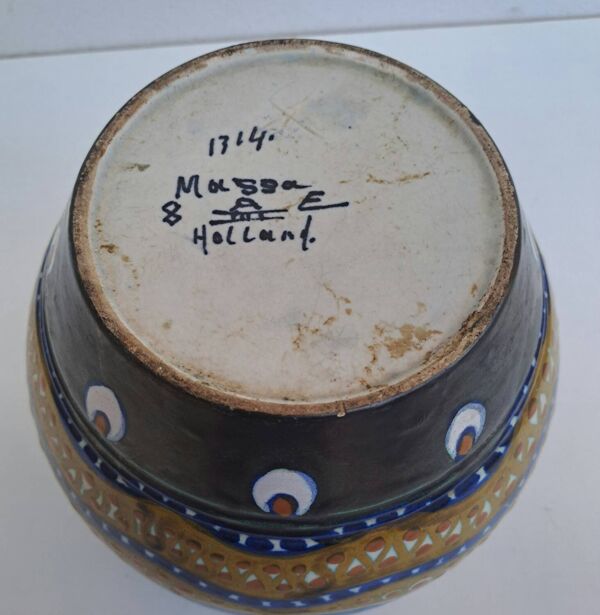 1314.
Massa
8 A E
Holland.